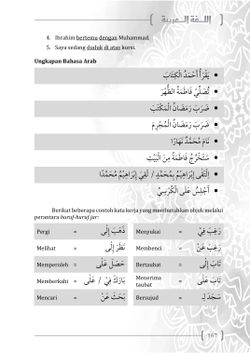 اللـغة العـربية
4. Ibrahim bertemu dengan Muhammad.
5. Saya sedang duduk di atas kursi.
Ungkapan Bahasa Arab
يَقْرَأُ أَحْمَدُ الْكِتَابَ
تُصَلِّيْ فَاطِمَةُ الظُّهْرَ
ضَرَبَ رَمَضَانُ الْمَكْتَبَ
ضَرَبَ رَمَضَانُ الْمُجْرِمَ
نَامَ مُحَمَّدٌ نَهَارًا
سَتَخْرُجُ فَاطِمَةُ مِنَ الْبَيْتِ
اِلْتَقَى إِبْرَاهِيْمُ بِمُحَمَّدٍ / لَقِيَ إِبْرَاهِيْمُ مُحَمَّدًا
أَجْلِسُ عَلَى الْكُرْسِيِّ
Berikut beberapa contoh kata kerja yang membutuhkan objek melalui
perantara huruf-huruf jar:
Pergi = ذَهَبَ إِلَى Menyukai = رَغِبَ فِيْ
Melihat = نَظَرَ إِلَى Membenci = رَغِبَ عَنْ
Memperoleh = حَصَلَ عَلَى Bertaubat = تَابَ إِلَى
Memberkahi = بَارَكَ فِيْ / عَلَى Menerima taubat = تَابَ عَلَى
Mencari = بَحَثَ عَنْ Bersujud = سَجَدَ لِـ
167